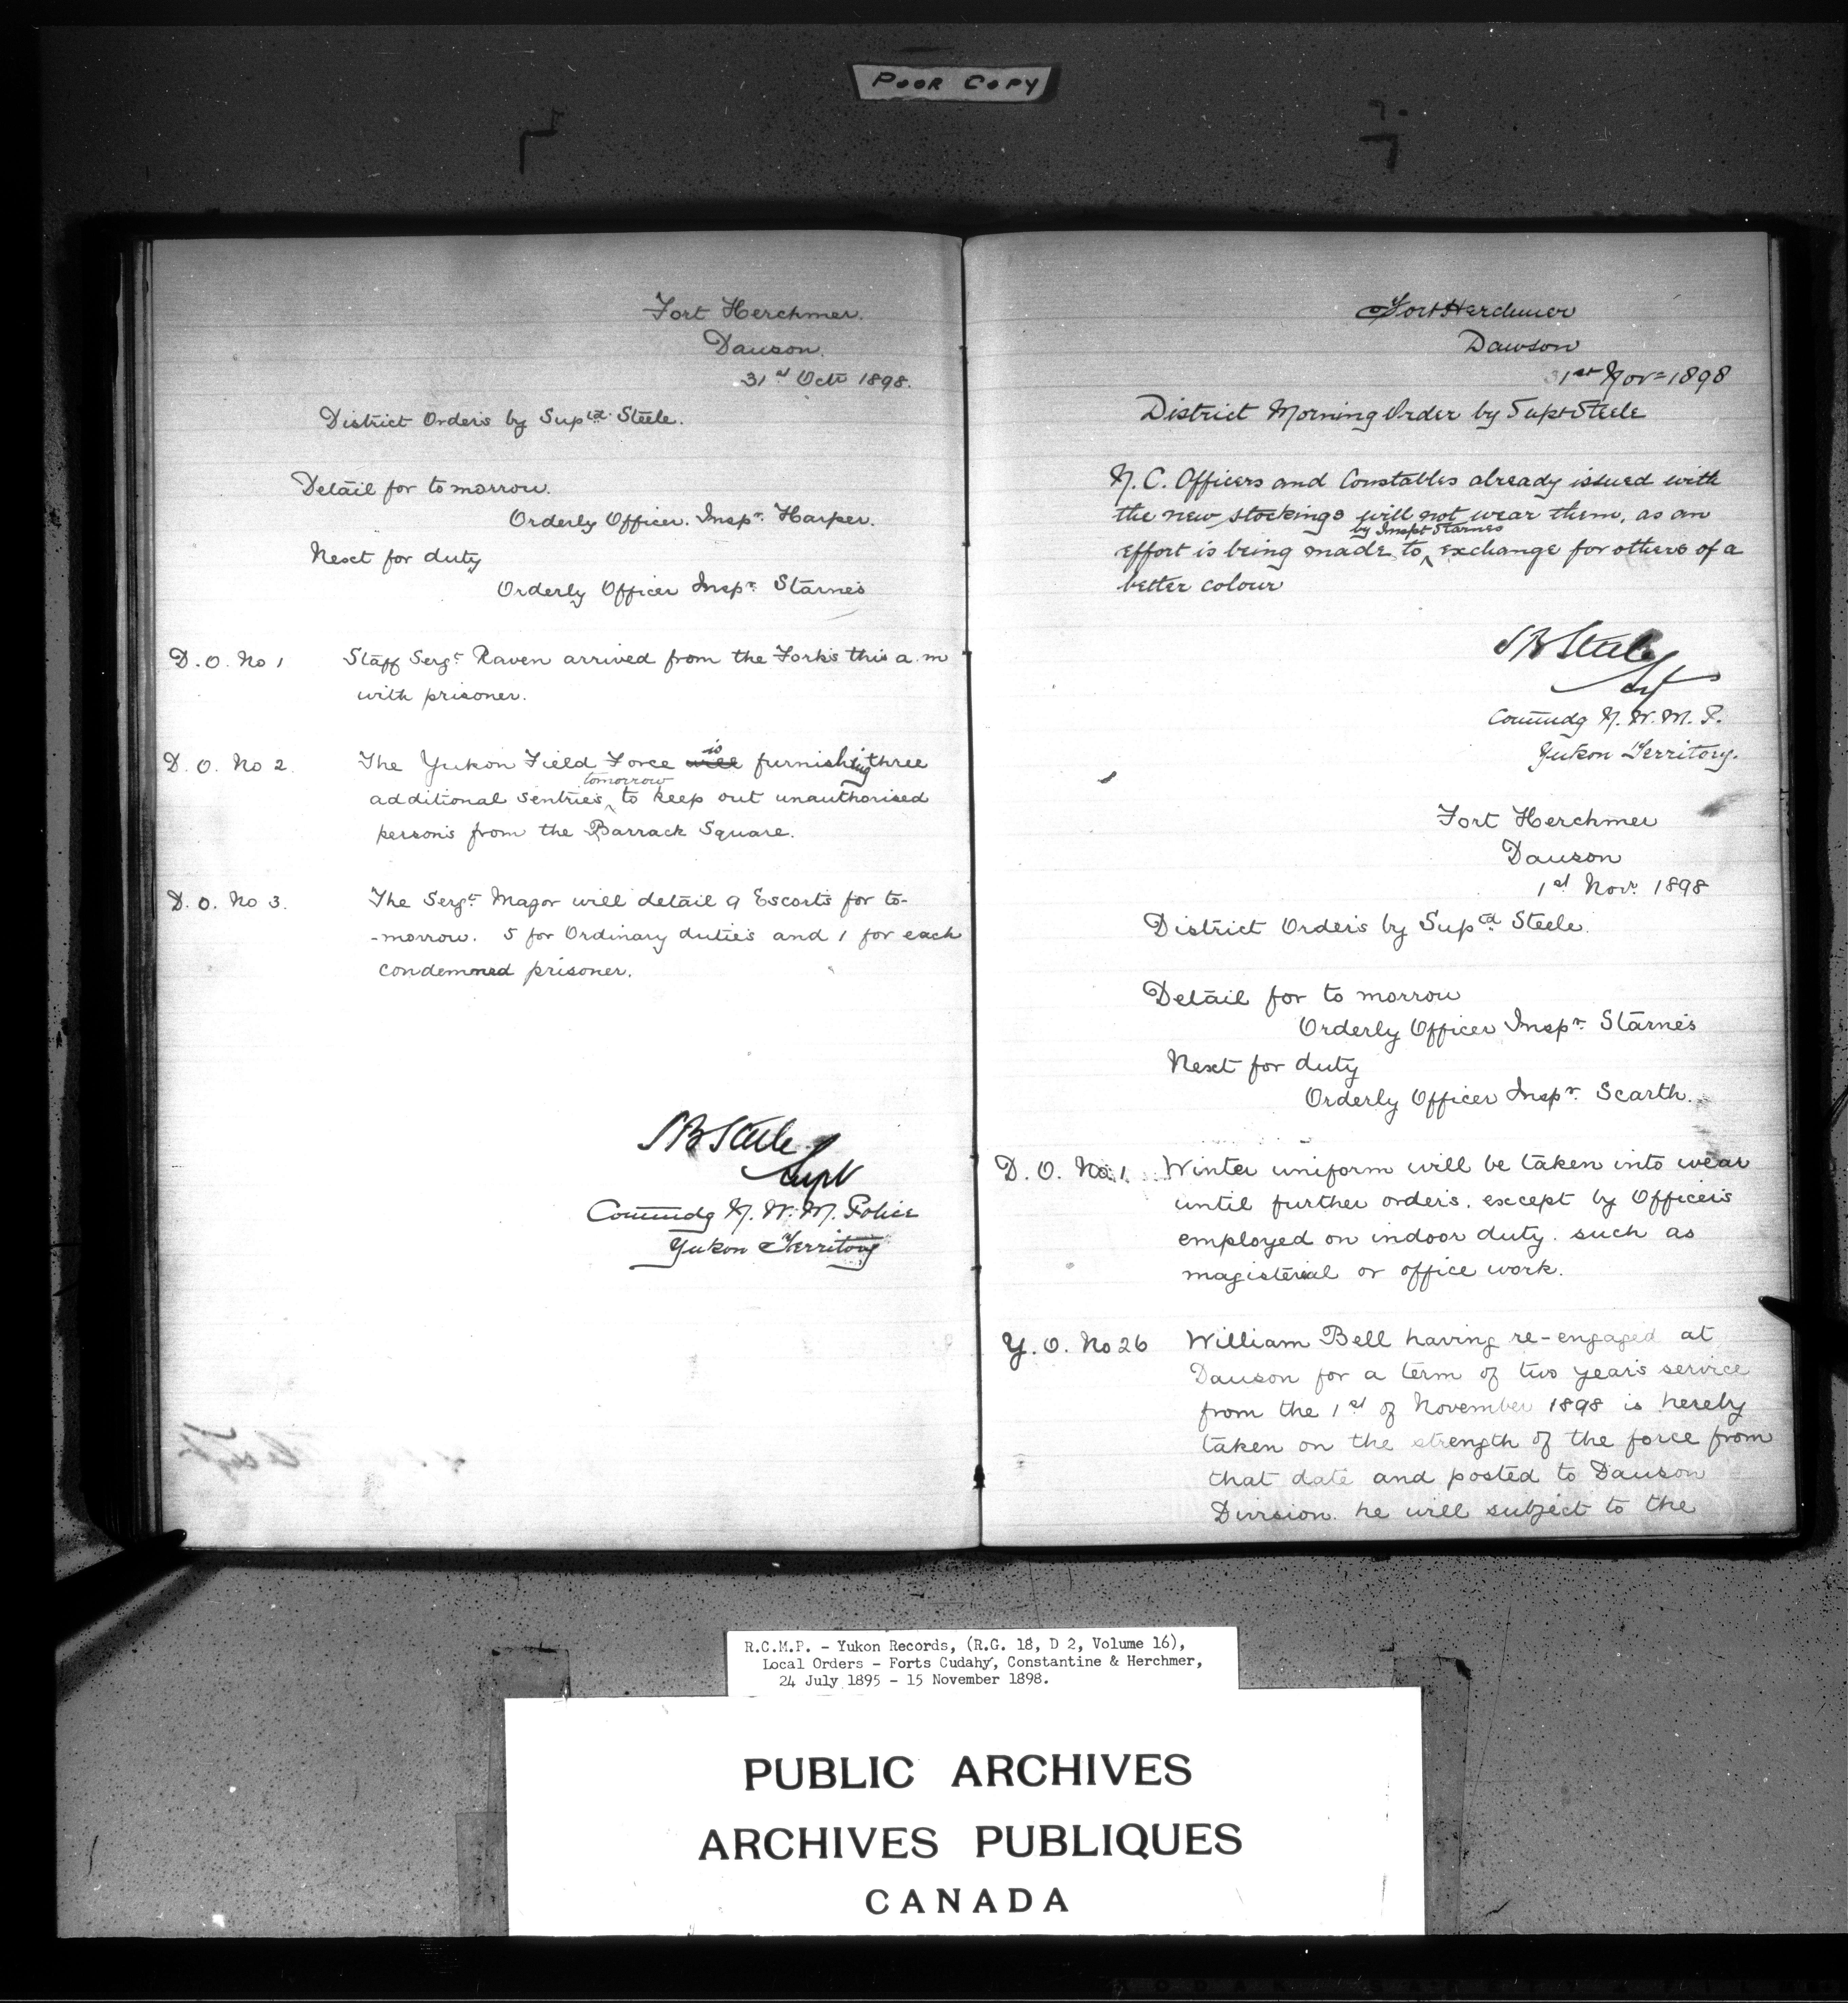 POOR COPY
Fort Herchmer.
Dawson.
31st Oct 1898.
District Orders by Supdt Steele.
Detail for tomorrow.
Orderly Officer. Inspr. Harper.
Next for duty
Orderly Officer Inspr. Starnes
D. O. No 1 Staff Sergt Raven arrived from the Forks this a.m
with prisoner.
D. O. No 2. The Yukon Field Force will is furnishing three
additional sentries tomorrow to keep out unauthorised
persons from the Barrack Square.
D. O. No 3. The Sergt Major will detail 9 Escorts for to-
-morrow. 5 for Ordinary duties and 1 for each
condemned prisoner.
S B Steele
Supt
Commdg N. W. M. Police
Yukon Territory
Fort Herchmer
Dawson
1st Nov 1898
District Morning Order by Supt Steele
N. C. Officers and Constables already issued with
the new stockings will not wear them, as an
effort is being made to by Inspt Starnes exchange for others of a
better colour
S B Steele
Supt
Commdg N. W. M. P.
Yukon Territory.
Fort Herchmer
Dawson
1st Nov. 1898
District Orders by Supdt Steele.
Detail for to morrow
Orderly Officer Inspr. Starnes
Next for duty
Orderly Officer Inspr. Scarth.
D. O. No. 1. Winter uniform will be taken into wear
until further orders. except by Officers
employed on indoor duty. such as
magisterial or office work.
Y. O. No 26 William Bell having re-engaged at
Dawson for a term of two years service
from the 1st of November 1898 is hereby
taken on the strength of the force from
that date and posted to Dawson
Division. he will subject to the
R.C.M.P. - Yukon Records, (R.G. 18, D 2, Volume 16),
Local Orders - Forts Cudahy, Constantine & Herchmer,
24 July 1895 - 15 November 1898.
PUBLIC ARCHIVES
ARCHIVES PUBLIQUES
CANADA